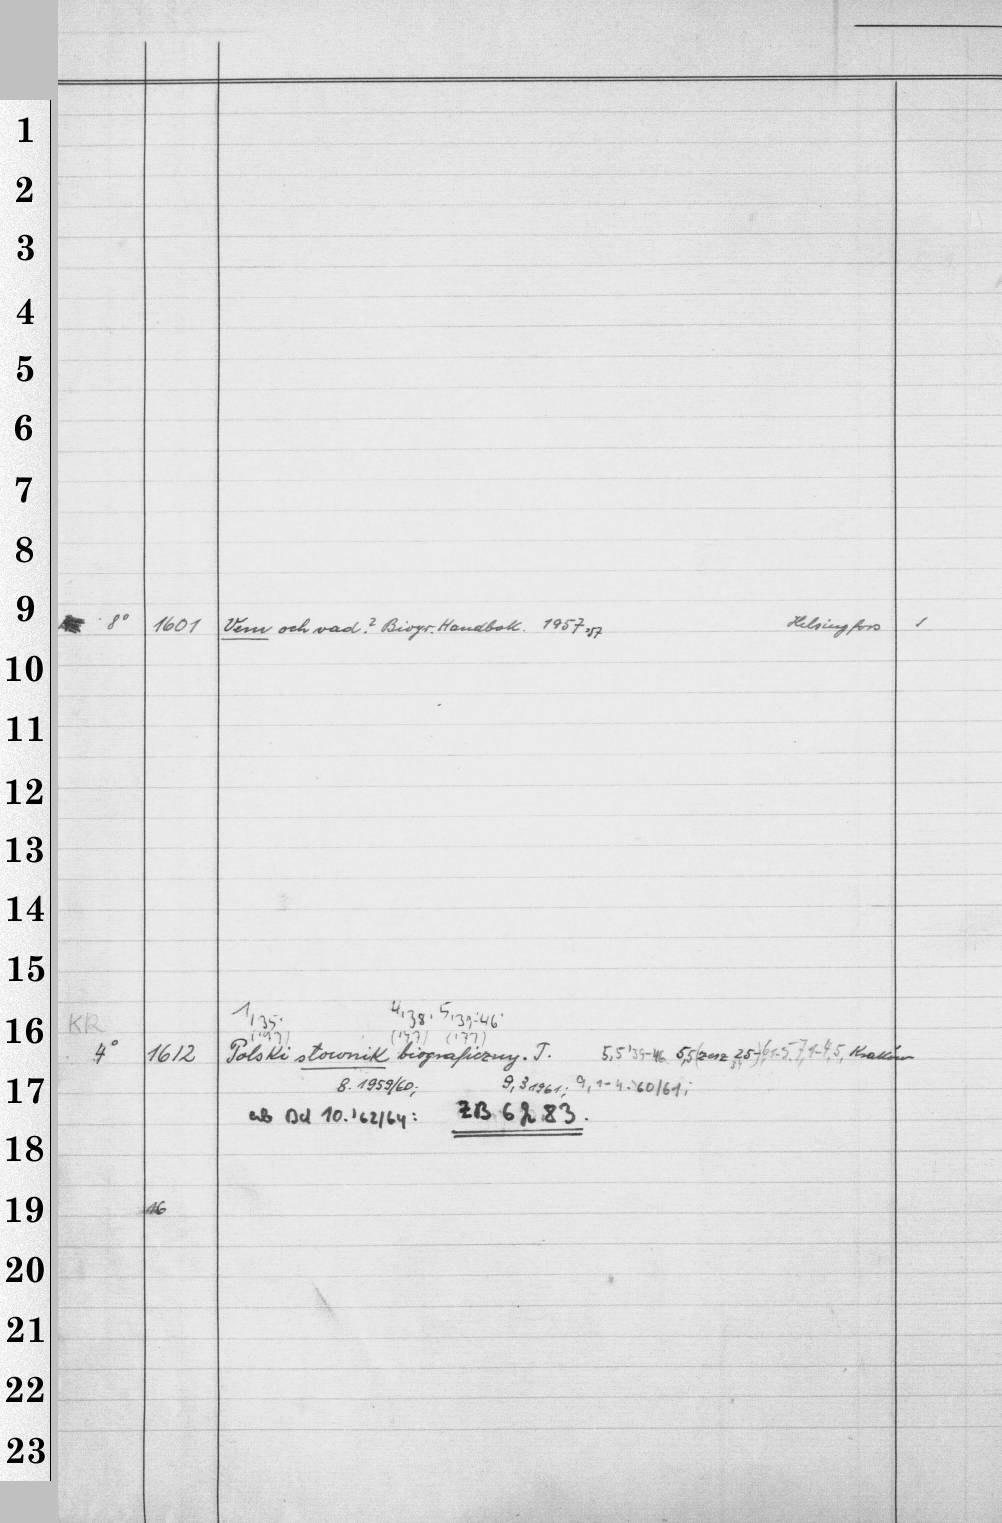 1
2
3
4
5
6
7
8
9
8° 1601 Vem och vad? Biogr. Handbok. 1957 '57 Helsingfors 1
10
11
12
13
14
15
1,35. 4,38. 5,39-46.
16 KR ('37) ('37)
4° 1612 Polski słownik biograficzny. T. 5,5'39-46 Kraków
17 8. 1959/60; 9,3 1961; 9, 1-4. '60/61;
ab Bd 10.'62/64: ZB 6283.
18
19 16
20
21
22
23